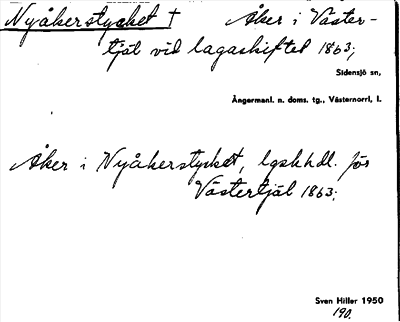 Nyåkerstycket † Åker i Väster-
tjäl vid lagaskiftet 1863;
Sidensjö sn,
Ångermanl. n. doms. tg., Västernorrl. l.
Åker i Nyåkerstycket, lgskhdl. för
Västertjäl 1863;
Sven Hiller 1950
190.